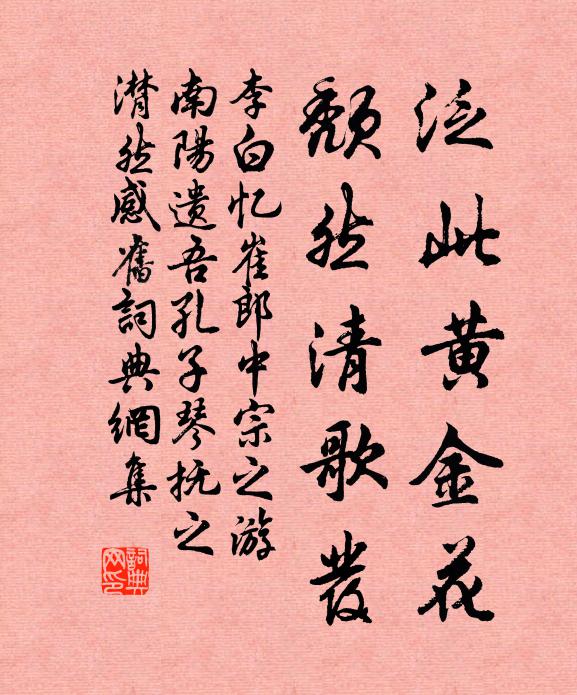 泛此黄金花
颓然清歌發
李白忆崔郎中宗之游
南陽遗吾孔子琴抚之
潸然感舊詞典網集
詞典网印